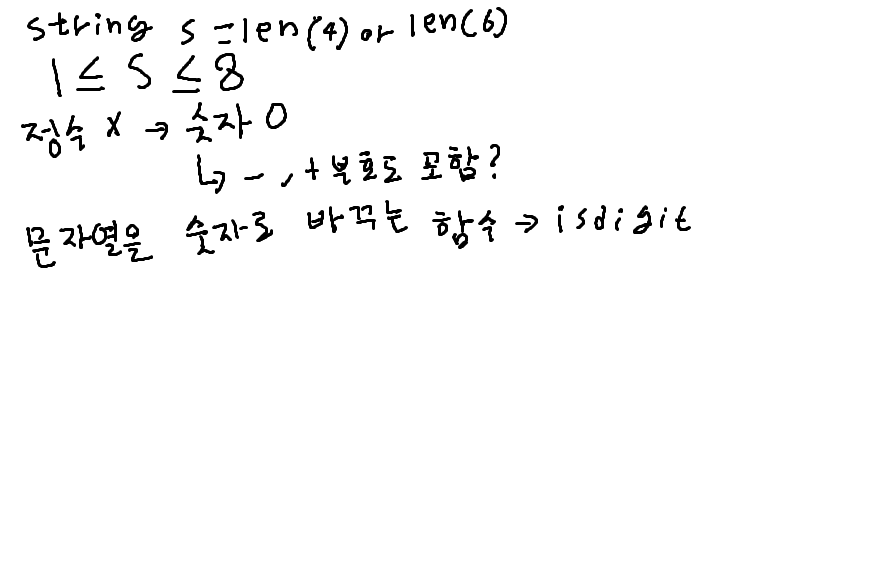 string s = len(4) or len(6)
1 ≤ s ≤ 8
정수 X → 숫자 O
↳ -, + 부호도 포함?
문자열을 숫자로 바꾸는 함수 → isdigit